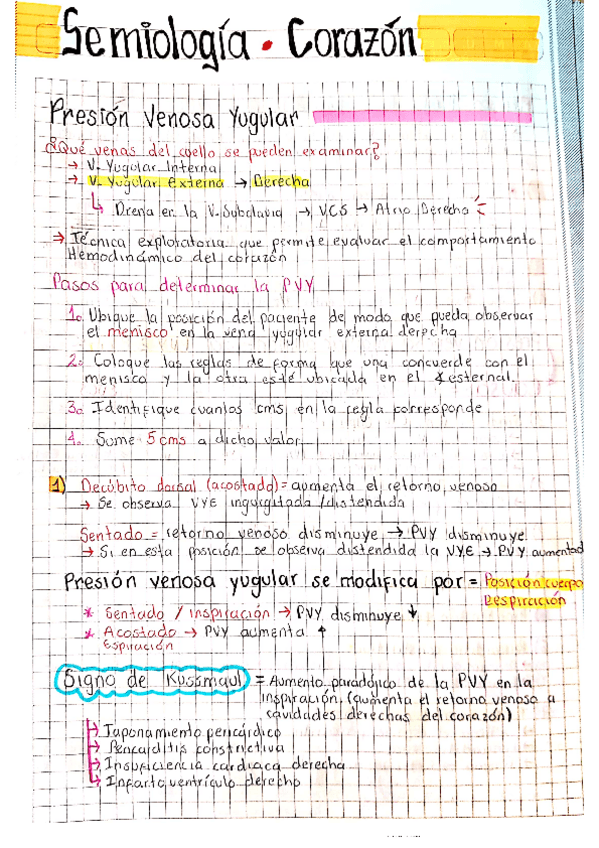 Semiología • Corazón
Presión Venosa Yugular
¿Qué venas del cuello se pueden examinar?
→ V. Yugular Interna
→ V. Yugular Externa → Derecha
↳ Drena en la V. Subclavia → VCS → Atrio Derecho
→ Técnica exploratoria que permite evaluar el comportamiento
Hemodinámico del corazón
Pasos para determinar la PVY
1. Ubique la posición del paciente de modo que pueda observar
el menisco en la vena yugular externa derecha
2. Coloque las reglas de forma que una concuerde con el
menisco y la otra esté ubicada en el ∡ esternal.
3. Identifique cuantos cms en la regla corresponde
4. Some 5 cms a dicho valor
1) Decúbito dorsal (acostado) = aumenta el retorno venoso
→ Se observa VYE ingurgitada / distendida
Sentado = retorno venoso disminuye → PVY disminuye
→ Si en esta posición se observa distendida la VYE → PVY aumentad
Presión venosa yugular se modifica por = Posición cuerpo
Respiración
* Sentado / inspiración → PVY disminuye ↓
* Acostado → PVY aumenta ↑
Espiración
Signo de Kussmaul = Aumento paradójico de la PVY en la
inspiración. (aumenta el retorno venoso a
cavidades derechas del corazón)
→ Taponamiento pericárdico
→ Pericarditis constrictiva
→ Insuficiencia cardiaca derecha
→ Infarto ventrículo derecho